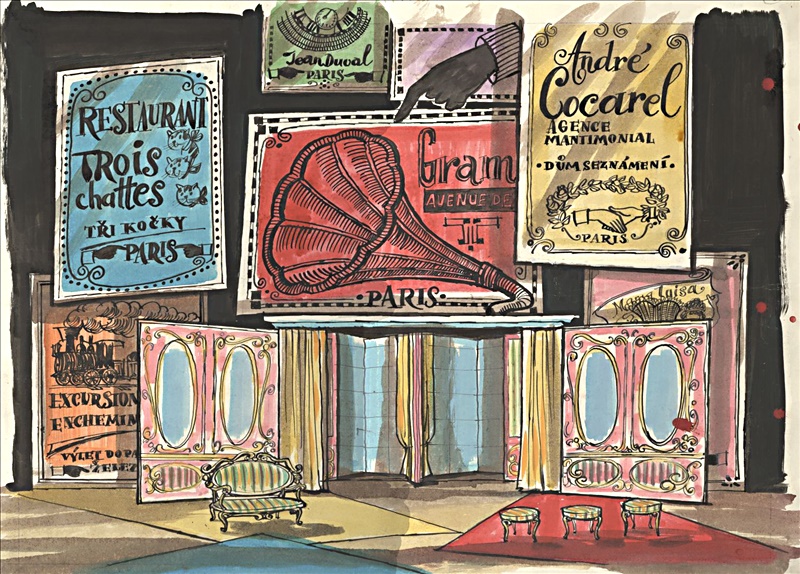 Jean Duval
PARIS
RESTAURANT
TROIS
chattes
TŘI KOČKY
PARIS
Gram
AVENUE DE
PARIS
André
Cocarel
AGENCE
MANTIMONIAL
DŮM SEZNÁMENÍ
PARIS
EXCURSION
ENCHEMIN
VÝLET DO PA
ŽELEZ